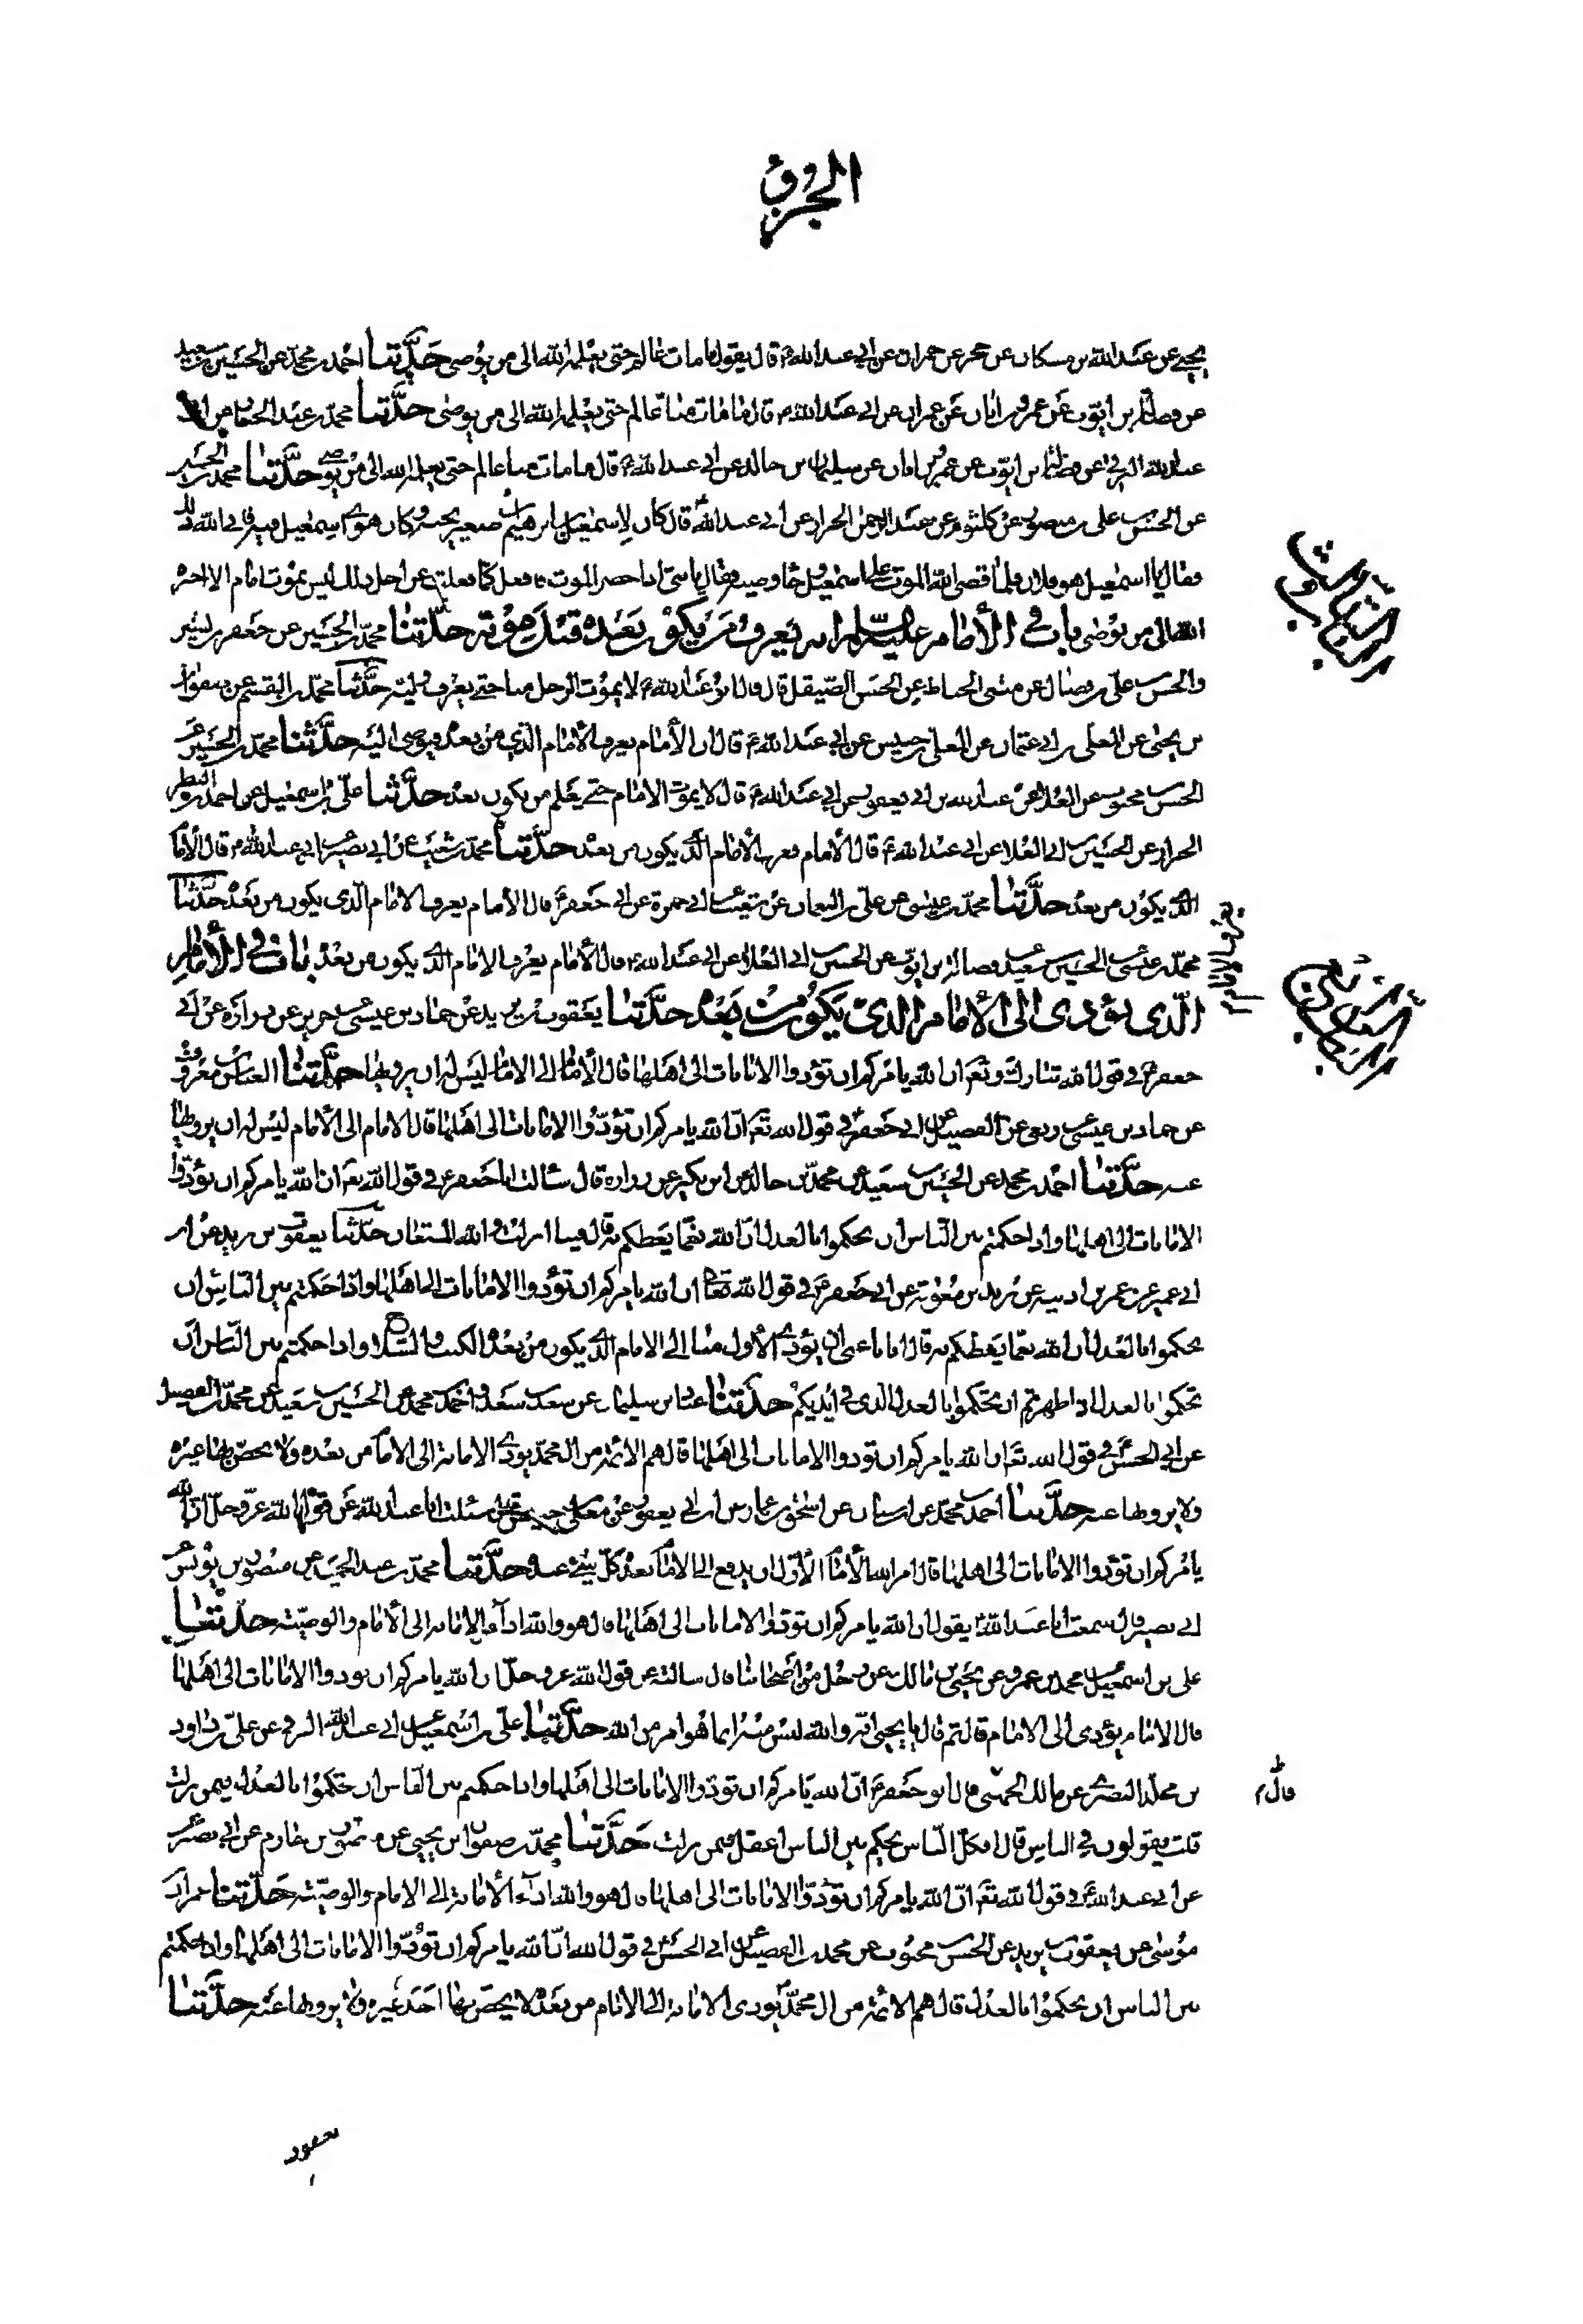 الجزؤ
يحيى عن عبد الله بن مسكان عن حجر عن حمران عن ابي عبد الله ع قال يقول ما مات عالم حتى يعلمه الله الى من يوصى حدثنا احمد بن محمد عن الحسين بن سعيد
عن فضالة بن ايوب عن عمرو بن ابان عن حمران عن ابي عبد الله ع قال ما مات منا عالم حتى يعلمه الله الى من يوصى حدثنا محمد بن عبد الجبار عن ابي
عبد الله البرقي عن فضالة بن ايوب عن عمر بن ابان عن سليمان بن خالد عن ابي عبد الله ع قال ما مات منا عالم حتى يعلمه الله الى من يوصى حدثنا محمد بن الحسين
عن الحسن بن علي بن منصور عن كلثوم عن عبد الرحمن الخزاز عن ابي عبد الله ع قال كان لاسمعيل بن ابرهيم ابن صغير يحبه وكان هوى اسمعيل فيه فابى الله ذلك
فقال يا اسمعيل هو فلان فلما قضى الله الموت على اسمعيل وجاء وصيه فقال يا بني اذا حضر الموت فافعل كما فعلت فمن اجل ذلك ليس يموت امام الا اخبره
الله الى من يوصى باب في الأمام عليه السلام انه يعرف من يكون بعده قبل موته حدثنا محمد بن الحسين عن جعفر بن بشير
والحسن بن علي بن فضال عن مثنى الحناط عن الحسن الصيقل قال قال ابو عبد الله ع لا يموت الرجل منا حتى يعرف وليه حدثنا محمد بن القسم عن صفوان
بن يحيى عن المعلى بن ابي عثمان عن المعلى بن خنيس عن ابي عبد الله ع قال ان الأمام يعرف الأمام الذي من بعده فيوصى اليه حدثنا محمد بن الحسين عن
الحسن بن محبوب عن العلا عن عبد الله بن ابي يعفور عن ابي عبد الله ع قال لا يموت الامام حتى يعلم من يكون بعده حدثنا علي بن اسمعيل عن احمد بن النضر
الخزاز عن الحسين بن ابي العلا عن ابي عبد الله ع قال الأمام يعرف الامام الذي يكون من بعده حدثنا محمد بن شعيب عن ابي بصير عن ابي عبد الله ع قال الأمام
الذي يكون من بعده حدثنا محمد بن عيسى عن علي بن النعمان عن شعيب عن ابي حمزة عن ابي جعفر ع قال الأمام يعرف الامام الذي يكون من بعده حدثنا
محمد بن عيسى عن الحسين بن سعيد عن فضالة بن ايوب عن الحسين بن ابي العلا عن ابي عبد الله ع قال الأمام يعرف الامام الذي يكون من بعده باب في الأمام
الذي يؤدى الى الأمام الذي يكون من بعده حدثنا يعقوب بن يزيد عن حماد بن عيسى عن حريز عن زرارة عن ابي
جعفر ع في قول الله تبارك وتع ان الله يامركم ان تؤدوا الامانات الى اهلها قال الأمام الى الامام ليس له ان يزويها عنه حدثنا العباس بن معروف
عن حماد بن عيسى عن ربعي عن الفضيل عن ابي جعفر ع في قول الله تع ان الله يامركم ان تؤدوا الامانات الى اهلها قال الامام الى الأمام ليس له ان يزويها
عنه حدثنا احمد بن محمد عن الحسين بن سعيد عن محمد بن خالد عن ابن بكير عن زرارة قال سالت ابا جعفر ع في قول الله تع ان الله يامركم ان تؤدوا
الامانات الى اهلها واذا حكمتم بين الناس ان تحكموا بالعدل ان الله نعما يعظكم به قال فينا انزلت والله المستعان حدثنا يعقوب بن يزيد عن ابن
ابي عمير عن عمر بن اذينه عن بريد بن معوية عن ابي جعفر ع في قول الله تعا ان الله يامركم ان تؤدوا الامانات الى اهلها واذا حكمتم بين الناس ان
تحكموا بالعدل ان الله نعما يعظكم به قال ايانا عنى ان يؤدى الأول منا الى الامام الذي يكون من بعده الكتب والسلاح واذا حكمتم بين الناس ان
تحكموا بالعدل اذا ظهرتم ان تحكموا بالعدل الذي في ايديكم حدثنا عباد بن سليمان عن سعد بن سعد واحمد بن محمد عن الحسين بن سعيد عن محمد بن الفضيل
عن ابي الحسن ع في قول الله تع ان الله يامركم ان تودوا الامانات الى اهلها قال هم الائمة من ال محمد يودى الامانة الى الامام من بعده ولا يخص بها غيره
ولا يزويها عنه حدثنا احمد بن محمد عن ابن سنان عن اسحق بن عمار عن ابن ابي يعفور عن معلى بن خنيس قال سئلت ابا عبد الله عن قول الله عز وجل ان الله
يامركم ان تؤدوا الامانات الى اهلها قال امر الله الأمام الأول ان يدفع الى الامام بعده كل شيء عنده حدثنا محمد بن عبد الحميد عن منصور بن يونس
ابي بصير قال سمعت ابا عبد الله ع يقول ان الله يامركم ان تودوا الامانات الى اهلها قال هو والله اداء الامانة الى الأمام والوصية حدثنا
علي بن اسمعيل عن محمد بن عمرو عن يحيى بن مالك عن رجل من أصحابنا قال سالته عن قول الله عز وجل ان الله يامركم ان تودوا الامانات الى اهلها
قال الامام يؤدى الى الامام قال ثم قال يا يحيى انه والله ليس منه انما هو امر من الله حدثنا علي بن اسمعيل عن ابي عبد الله البرقي عن علي بن داود
بن مخلد النصري عن مالك الجهني قال ابو جعفر ع ان الله يامركم ان تودوا الامانات الى اهلها واذا حكمتم بين الناس ان تحكموا بالعدل فيمن نزلت
قال م
قلت يقولون في الناس قال افكل الناس يحكم بين الناس اعقل فيمن نزلت حدثنا محمد بن صفوان بن يحيى عن منصور بن حازم عن ابي بصير
عن ابي عبد الله ع في قول الله تع ان الله يامركم ان تؤدوا الامانات الى اهلها قال هو والله اداء الأمانة الى الامام والوصية حدثنا عمران بن
موسى عن يعقوب بن يزيد عن الحسن بن محبوب عن محمد بن الفضيل عن ابي الحسن ع في قول الله ان الله يامركم ان تؤدوا الامانات الى اهلها واذا حكمتم
بين الناس ان تحكموا بالعدل قال هم الائمة من ال محمد يودى الامانة الى الامام من بعده لا يخص بها احد غيره ولا يزويها عنه حدثنا